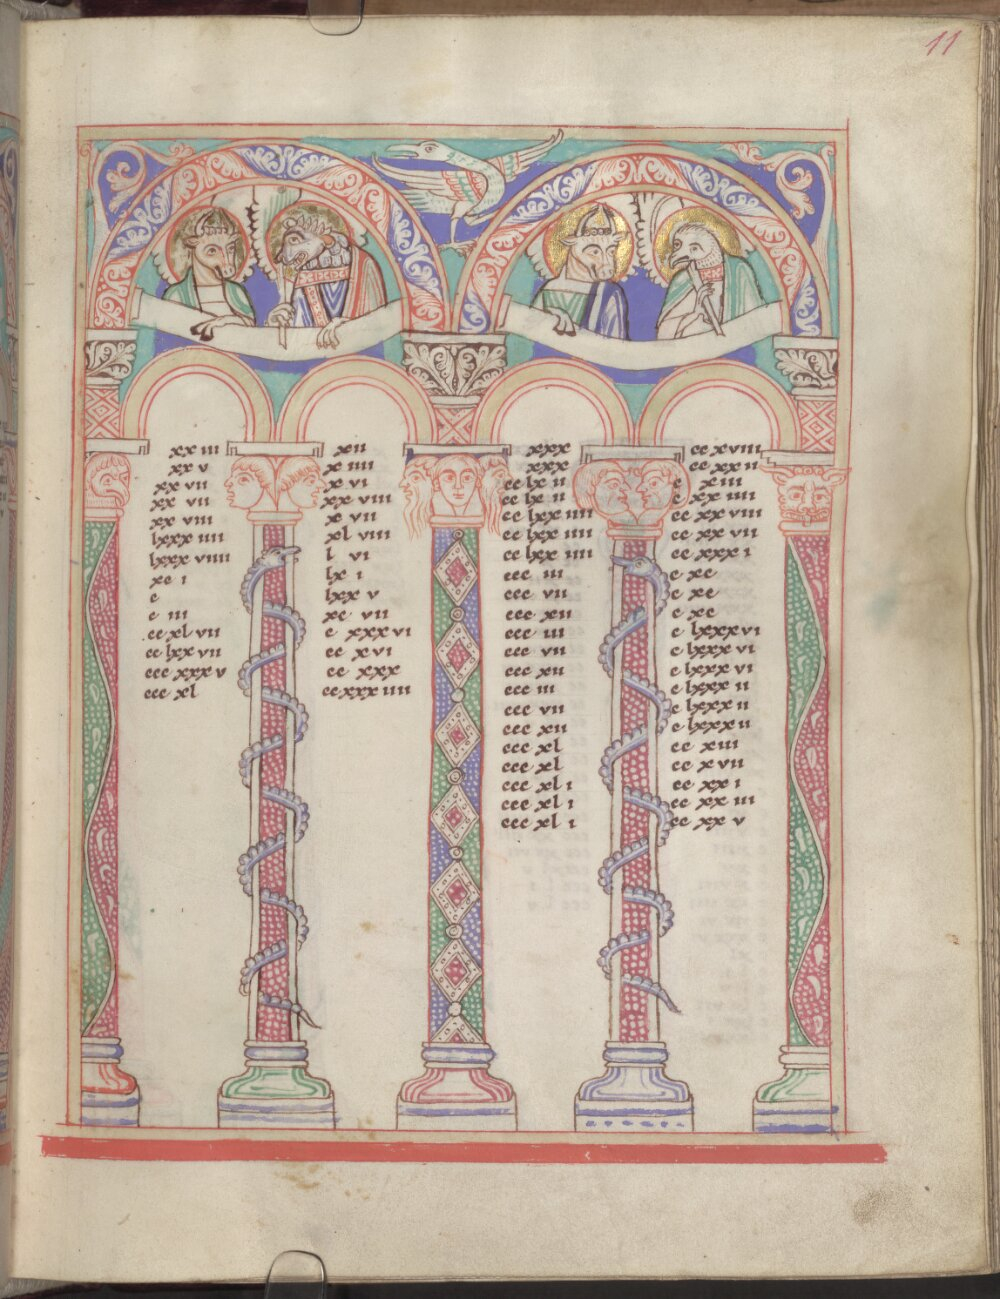 11
xxiii
xxv
xxvii
xxvii
xxviii
lxxxiiii
lxxxviiii
xci
c
ciii
ccxlvii
cclxxvii
cccxxxv
cccxl
xii
xiiii
xvi
xxviii
xvii
xlviii
lvi
lxi
lxxv
xcvii
cxxxvi
ccxvi
ccxxx
ccxxxiiii
xxx
xxx
cclxii
cclxii
cclxxiiii
cclxxiiii
cclxxiiii
ccciii
cccvii
cccxii
ccciii
cccvii
cccxii
ccciii
cccvii
cccxii
cccxl
cccxl
cccxli
cccxli
cccxli
ccxviii
ccxxii
cxiii
cxxiiii
ccxxviii
ccxxvii
ccxxxi
cxc
cxc
cxc
clxxxvi
clxxxvi
clxxxvi
clxxxii
clxxxii
clxxxii
ccxiii
ccxvii
ccxxi
ccxxiii
ccxxv